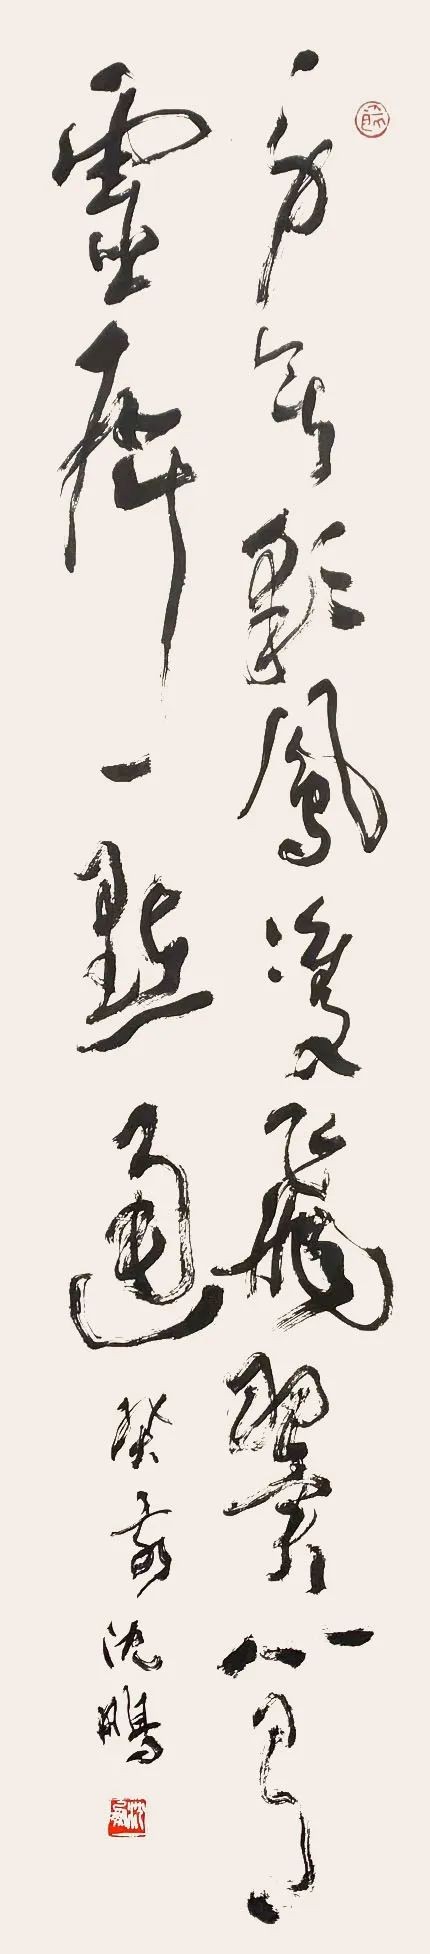 身無彩鳳雙飛翼心有
靈犀一點通
癸亥沈鵬